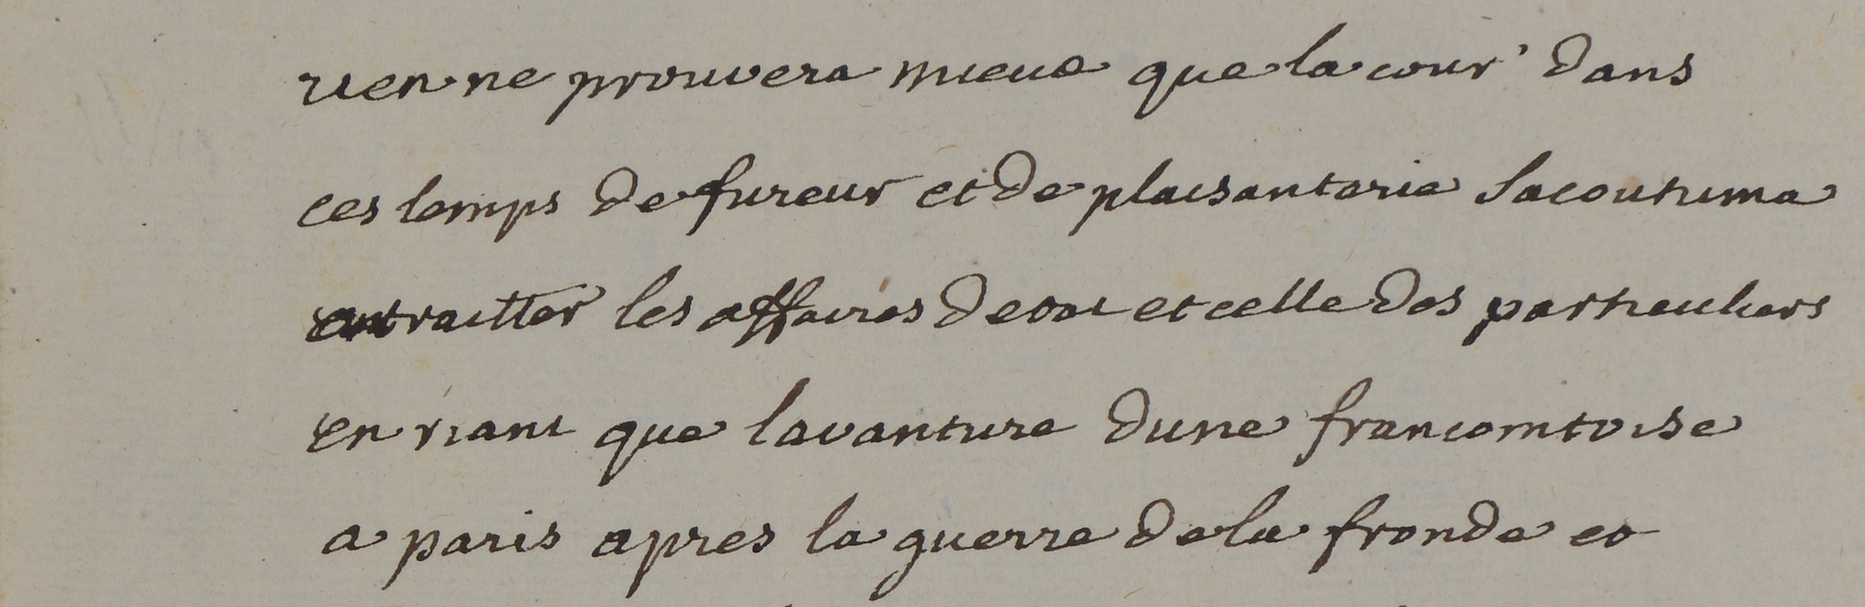 rien ne prouvera mieux que la cour dans
ces temps de fureur et de plaisanterie sacoutuma
a traitter les affaires detat et celle des particuliers
en riant que lavanture dune francomtoise
a paris apres la guerre de la fronde et